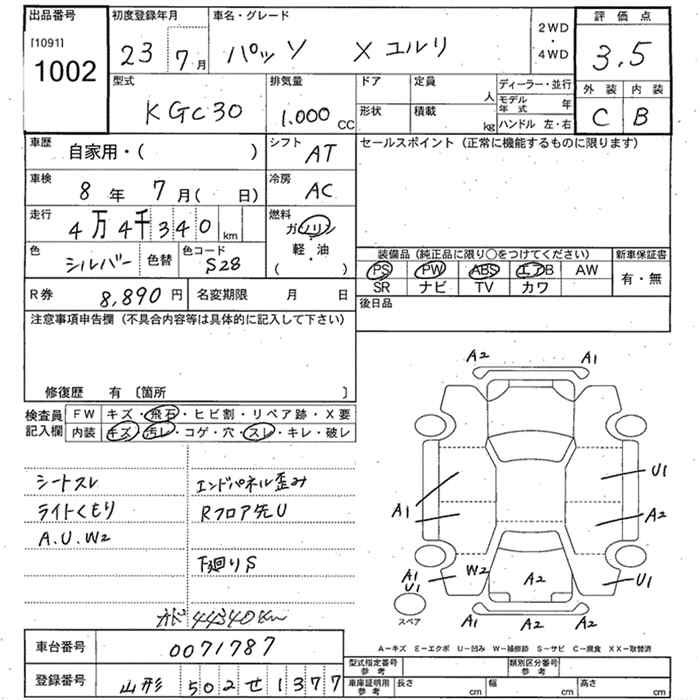 出品番号 初度登録年月 車名・グレード 2WD・4WD 評価点
[1091] 1002 23 7月 パッソ X ユルリ 3.5
型式 排気量 ドア 定員 人 ディーラー・並行 外装 内装
KGC30 1.000 CC 形状 積載 kg モデル年式 年 C B
ハンドル 左・右
車歴 自家用・( ) シフト AT セールスポイント (正常に機能するものに限ります)
車検 8年 7月( 日) 冷房 AC
走行 4万4千340km 燃料 ガソリン・軽・油 ( )
色 シルバー 色替 色コード S28 装備品 (純正品に限り○をつけてください) 新車保証書
PS PW ABS エアB AW 有・無
SR ナビ TV カワ
R券 8,890円 名変期限 月 日 後日品
注意事項申告欄 (不具合内容等は具体的に記入して下さい)
修復歴 有 〔箇所 〕
検査員記入欄 FW キズ・飛石・ヒビ割・リペア跡・X要
内装 キズ・汚レ・コゲ・穴・スレ・キレ・破レ
シートスレ エンドパネル歪み
ライトくもり Rフロア先U
A.U.W2
下廻りS
44340km
A2 A1
U1
A1 A2
A1 U1 W2 A2 U1
スペア A1 A2 A2
A-キズ E-エクボ U-凹み W-補修跡 S-サビ C-腐食 XX-取替済
車台番号 0071787
型式指定番号 参考 類別区分番号 参考
登録番号 山形 502 せ 1377
車庫証明用 参考 長さ cm 幅 cm 高さ cm